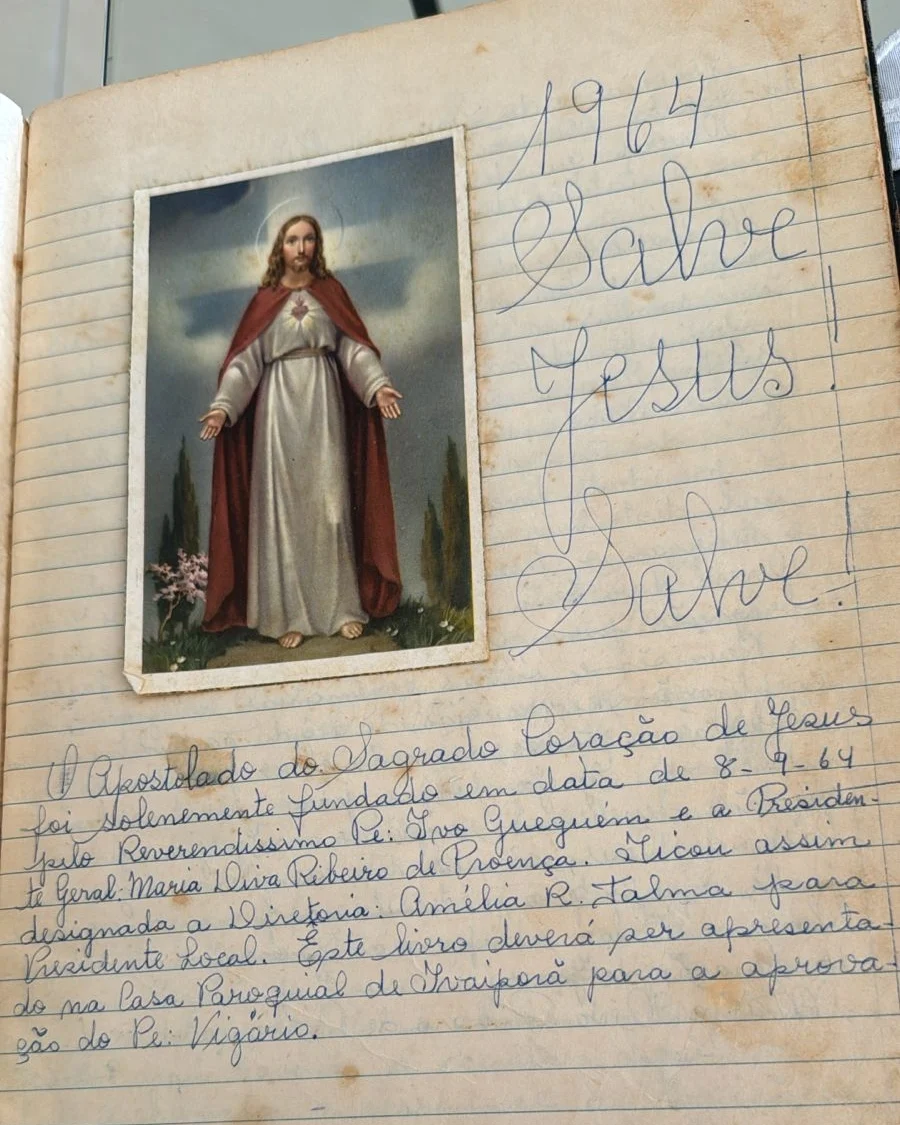 1964
Salve
Jesus!
Salve!
O Apostolado do Sagrado Coração de Jesus
foi solenemente fundado em data de 8-9-64
pelo Reverendissimo Pe: Ivo Gueguém e a Presiden-
te Geral: Maria Diva Ribeiro de Proença. Ficou assim
designada a Diretoria: Amélia R. Talma para
Presidente Local. Êste livro deverá ser apresenta-
do na Casa Paroquial de Ivaiporã para a aprova-
ção do Pe: Vigário.